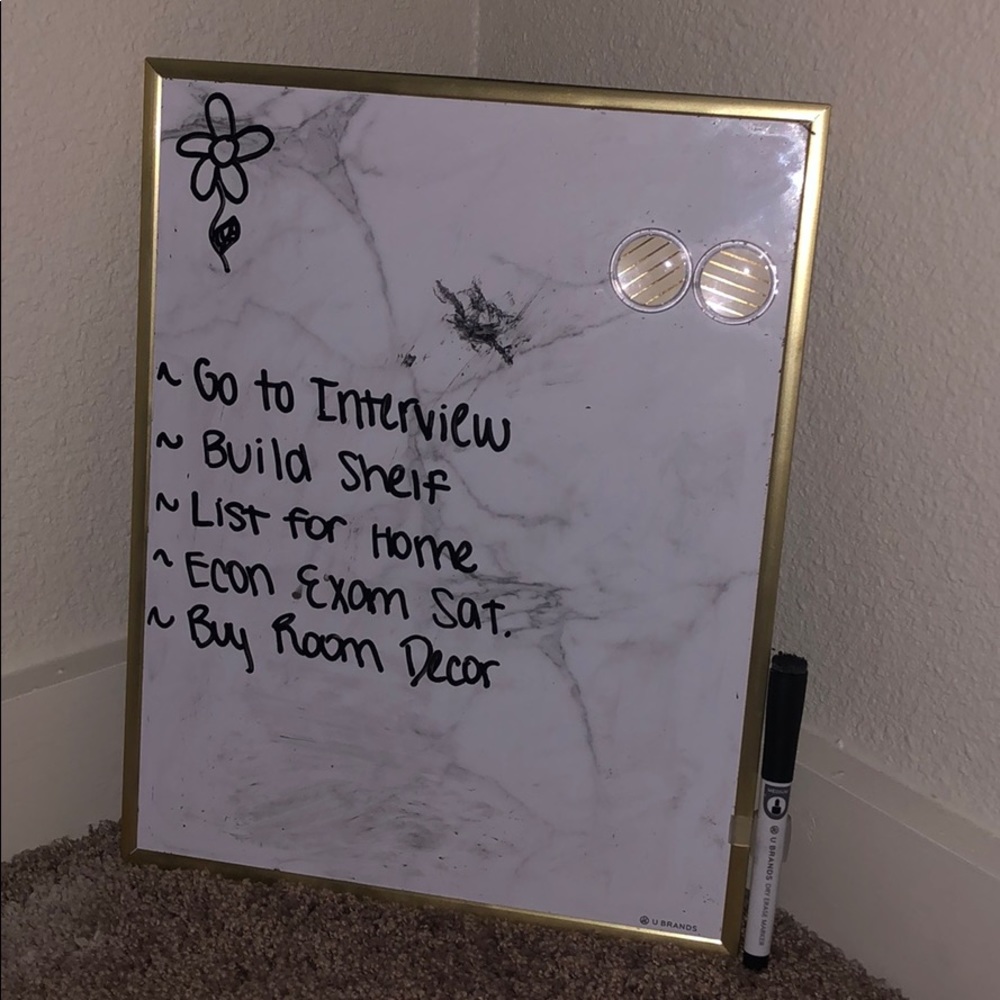 ~ Go to Interview
~ Build Shelf
~ List for Home
~ Econ Exam Sat.
~ Buy Room Decor
U BRANDS
MEDIUM
U BRANDS DRY ERASE MARKER